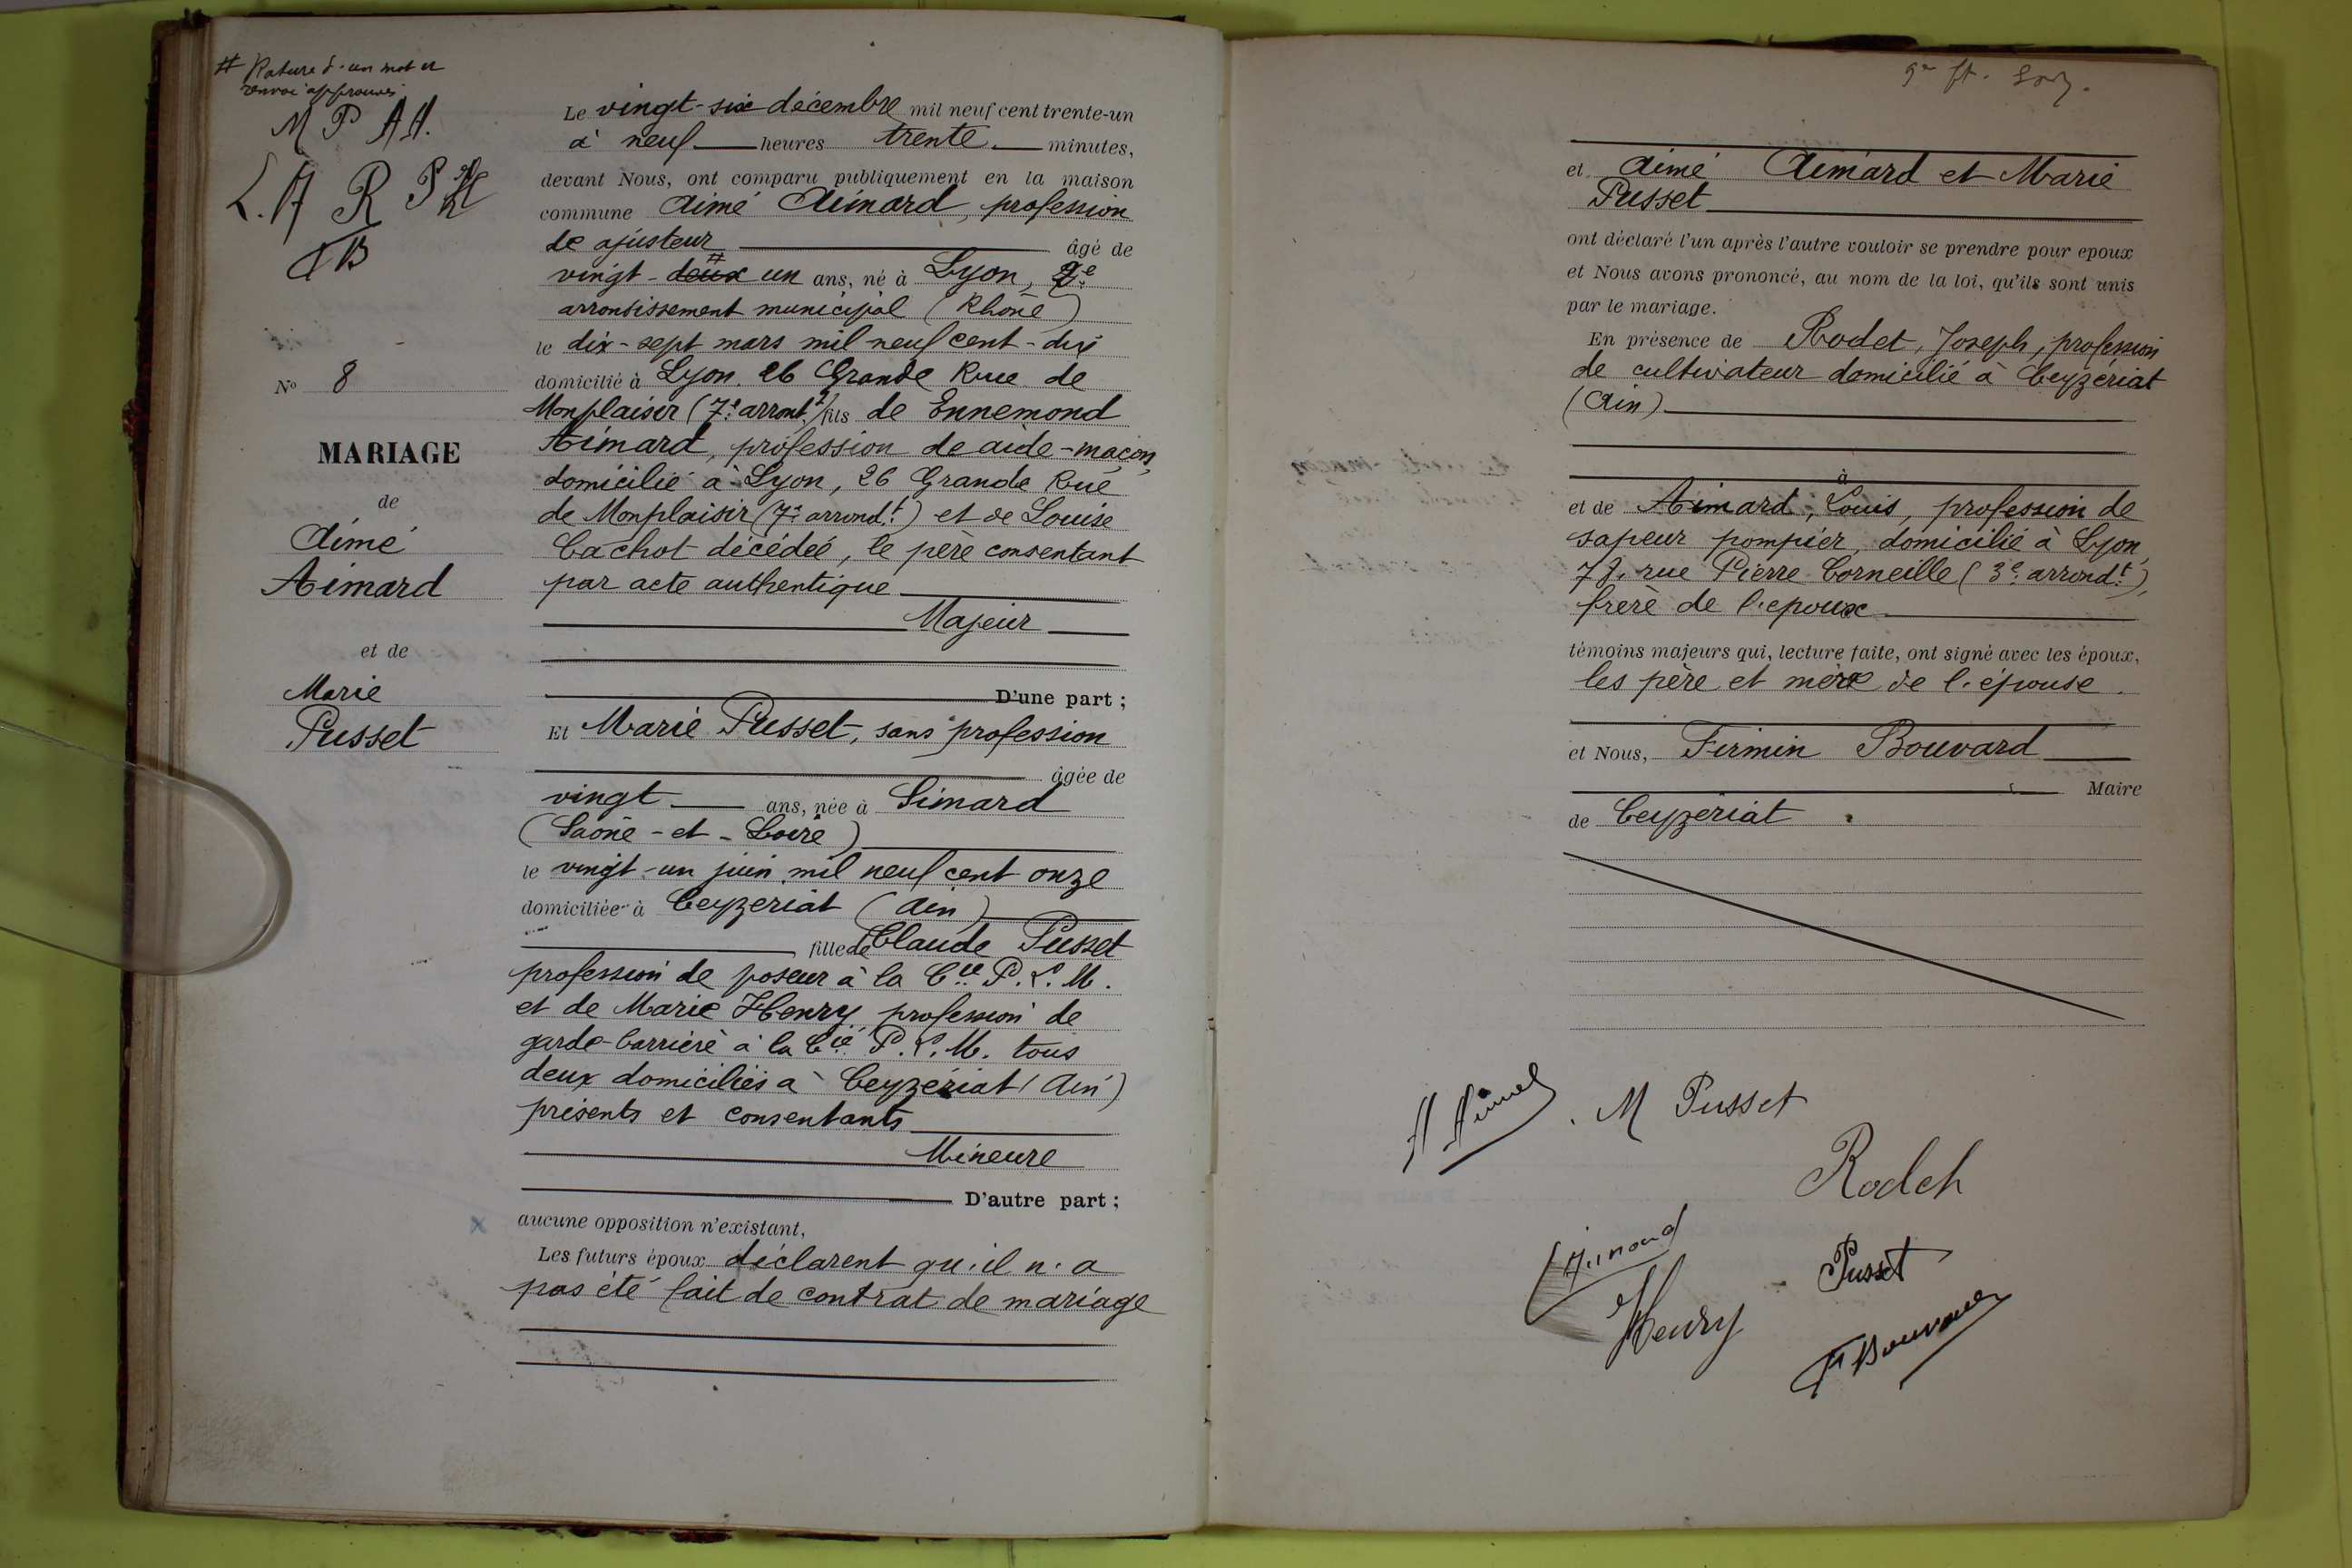 # Rature d'un mot et
renvoi approuvés
M P A A.
L. A R P H
FB
N° 8
MARIAGE
de
Aimé
Aimard
et de
Marie
Pusset
Le vingt-six décembre mil neuf cent trente-un
à neuf heures trente minutes,
devant Nous, ont comparu publiquement en la maison
commune Aimé Aimard, profession
de ajusteur âgé de
#
vingt-deux un ans, né à Lyon, 2e
arrondissement municipal (Rhône)
le dix-sept mars mil neuf cent-dix
domicilié à Lyon. 26 Grande Rue de
Monplaisir (7e arront) fils de Ennemond
Aimard, profession de aide-maçon,
domicilié à Lyon, 26 Grande Rue
de Monplaisir (7e arrondt) et de Louise
Cachot décédée, le père consentant
par acte authentique
Majeur
D'une part ;
Et Marie Pusset, sans profession
âgée de
vingt ans, née à Simard
(Saône-et-Loire)
le vingt-un juin mil neuf cent onze
domiciliée à Ceyzeriat (Ain)
fille de Claude Pusset
profession de poseur à la Cie P.L.M.
et de Marie Henry profession de
garde-barrière à la Cie P.L.M. tous
deux domiciliés à Ceyzériat (Ain)
présents et consentants
Mineure
D'autre part ;
x aucune opposition n'existant,
Les futurs époux déclarent qu'il n'a
pas été fait de contrat de mariage
et Aimé Aimard et Marie
Pusset
ont déclaré l'un après l'autre vouloir se prendre pour epoux
et Nous avons prononcé, au nom de la loi, qu'ils sont unis
par le mariage.
En présence de Rodet, Joseph, profession
de cultivateur domicilié à Ceyzériat
(Ain)
à
et de Aimard, Louis, profession de
sapeur pompier, domicilié à Lyon,
78. rue Pierre Corneille (3e arrondt),
frère de l'epoux
témoins majeurs qui, lecture faite, ont signé avec les époux,
les père et mère de l'épouse.
et Nous, Firmin Bouvard
Maire
de Ceyzériat.
A Aimard
M Pusset
Rodet
Aimard
Pusset
Henry
F Bouvard